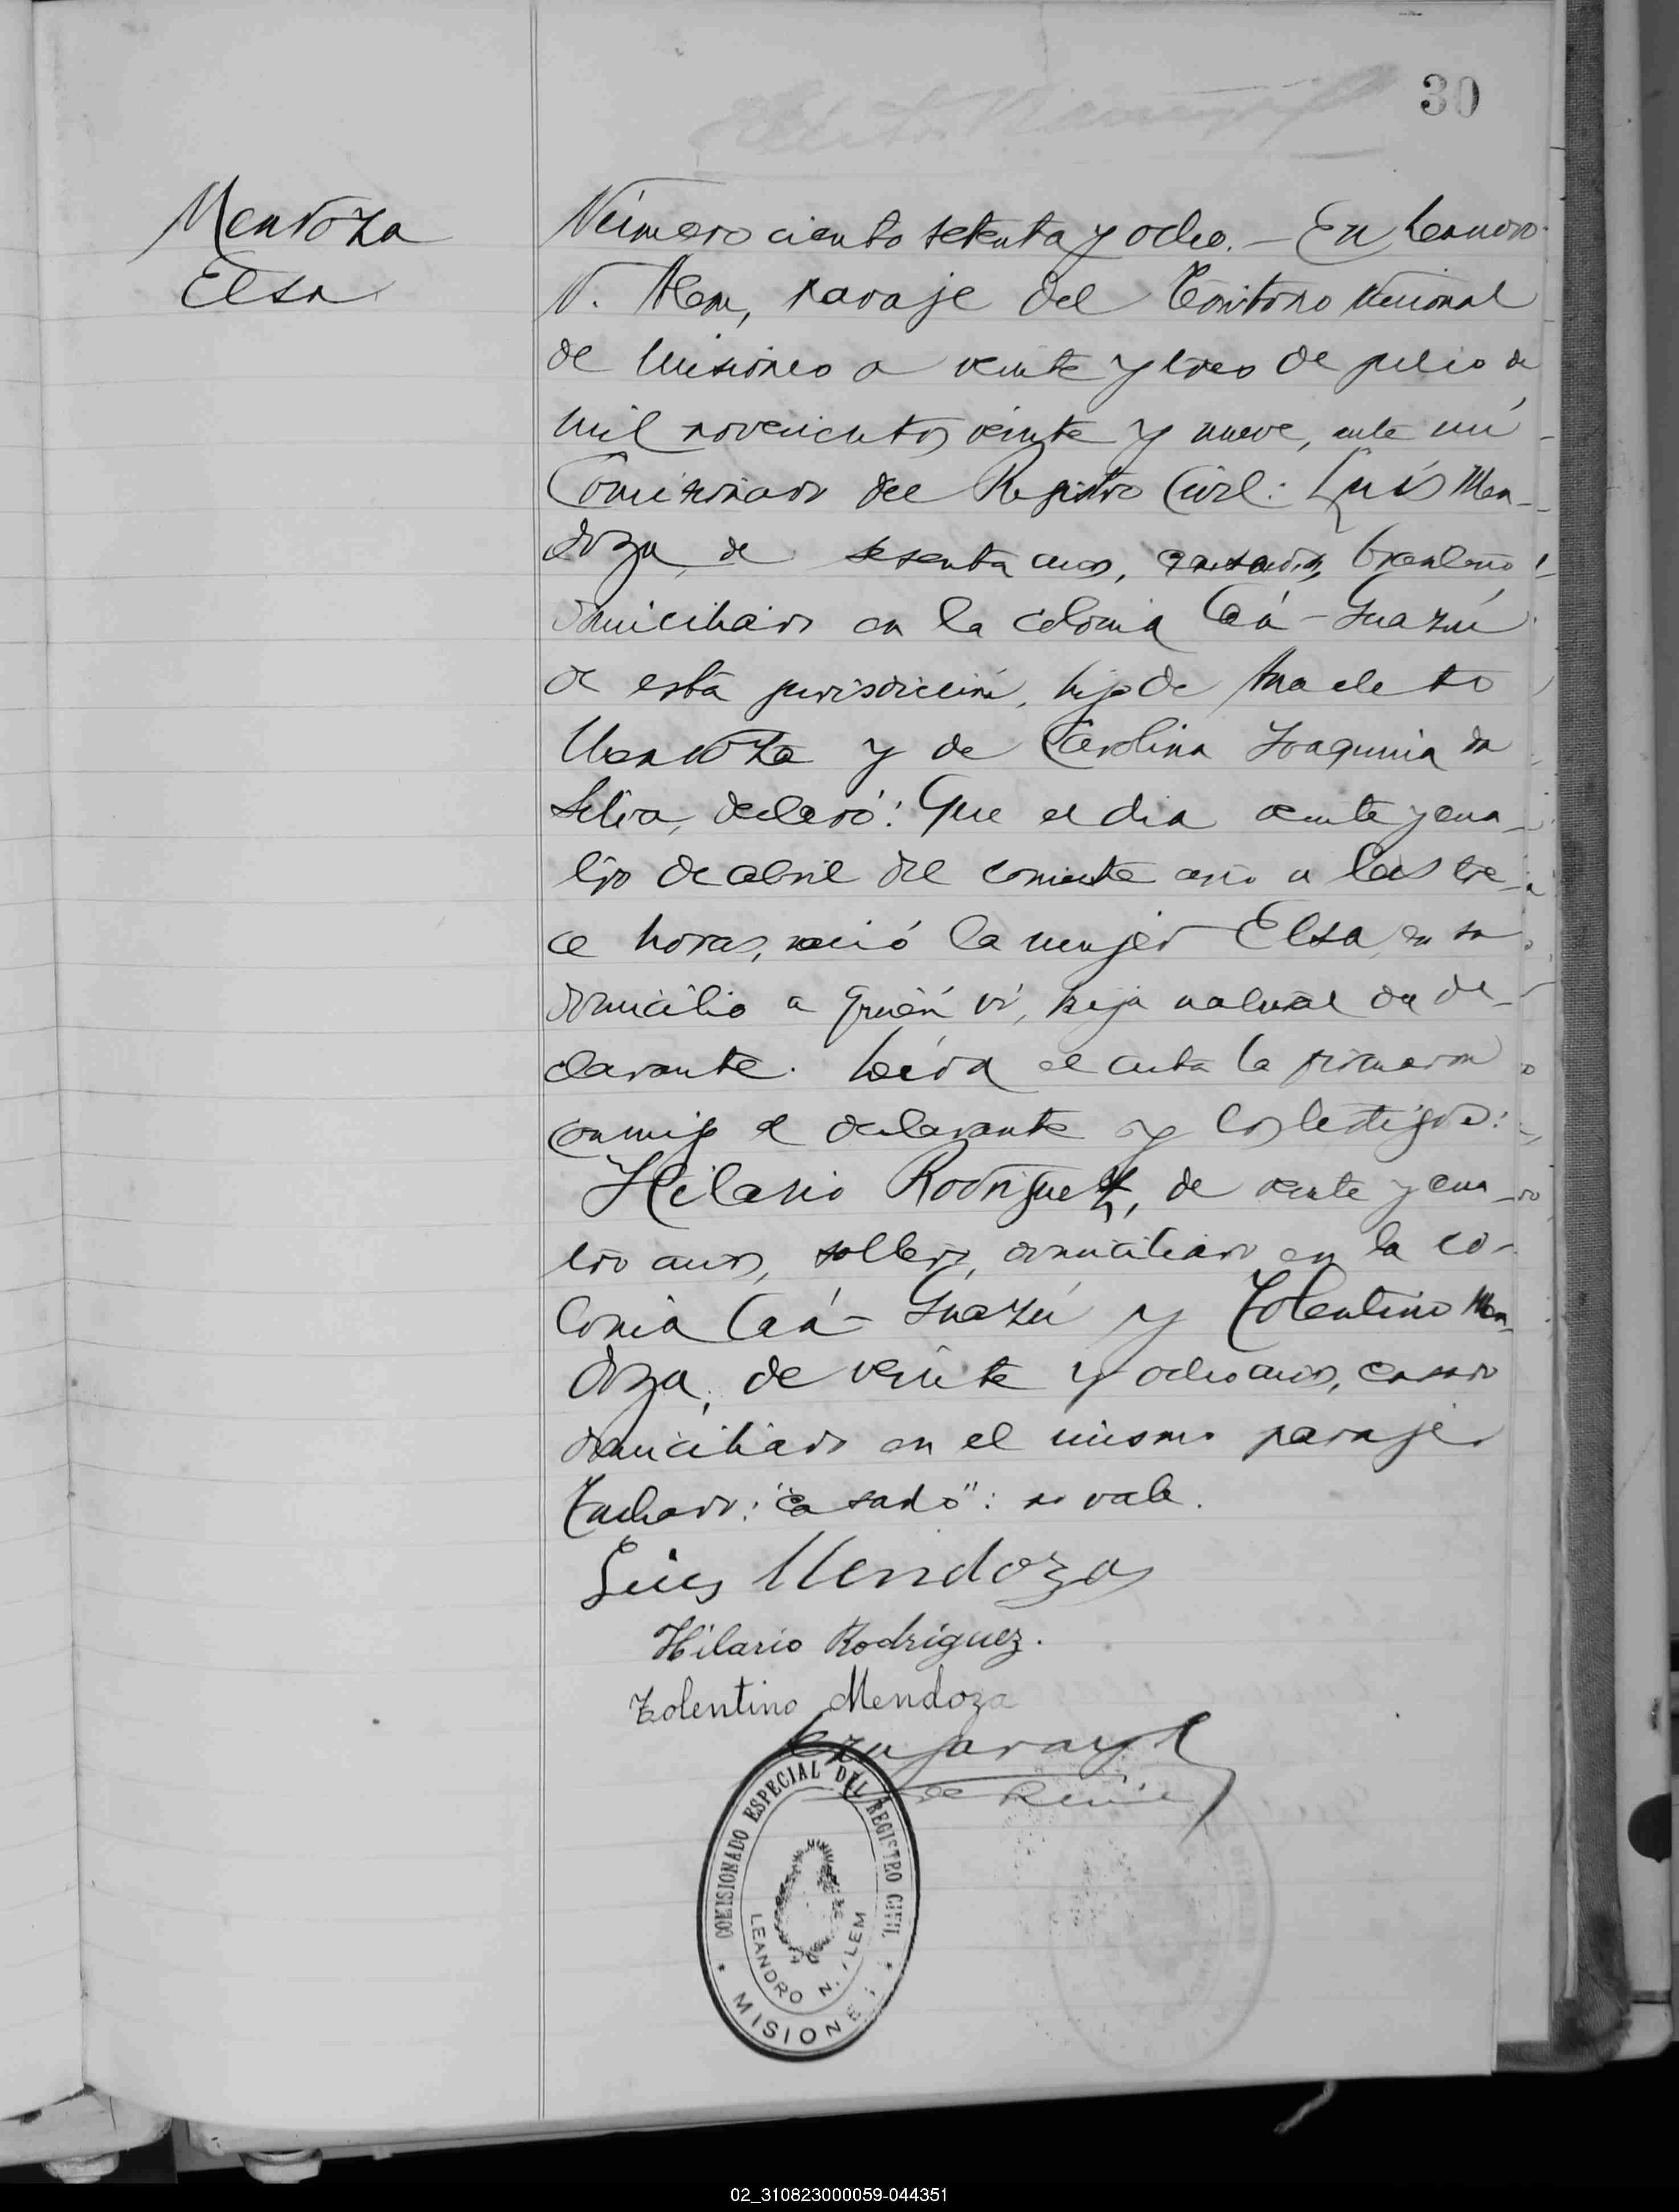 30
Mendoza
Elsa
Número ciento setenta y ocho. — En Leandro
N. Alem, paraje del Territorio Nacional
de Misiones a veinte y tres de julio de
mil novecientos veinte y nueve, ante mí
Comisionado del Registro Civil: Luis Men-
doza, de sesenta años, casado, brasileño
domiciliado en la colonia Caá-Guazú
de esta jurisdicción, hijo de Anacleto
Mendoza y de Carolina Joaquina da
Silva, declaró: Que el dia veinte y cua-
tro de abril del corriente año a las tre-
ce horas, nació la mujer Elsa, en su
domicilio a quién ví, hija natural del de-
clarante. Leída el acta la firmaron
conmigo el declarante y los testigos:
Hilario Rodriguez, de veinte y cua-
tro años, soltero, domiciliado en la co-
lonia Caá-Guazú y Tolentino Men-
doza, de veinte y ocho años, casado
domiciliado en el mismo paraje.
Tachado: "casado": no vale.
Luis Mendoza
Hilario Rodriguez.
Tolentino Mendoza
COMISIONADO ESPECIAL DEL REGISTRO CIVIL
LEANDRO N. ALEM
* MISIONES *
02_310823000059-044351